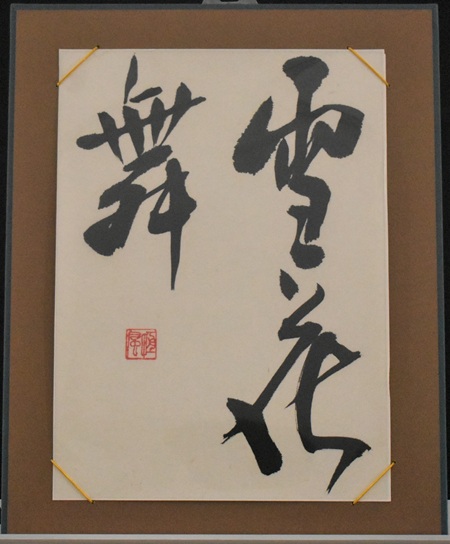 雪花
舞